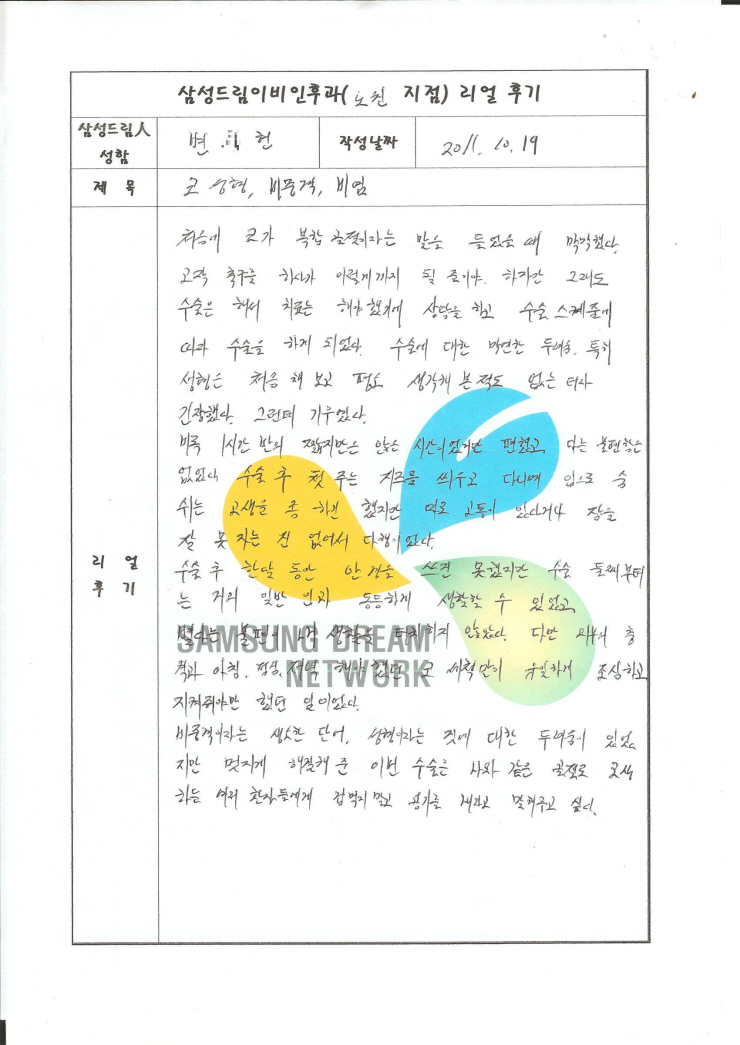 삼성드림이비인후과(노원 지점) 리얼 후기
삼성드림人 성함
변 헌
작성날짜
2011. 10. 19
제 목
코 성형, 비중격, 비염
리 얼 후 기
처음에 코가 복합 골절이라는 말을 들었을 때 막막했다.
고작 축구를 하다가 이렇게까지 될 줄이야. 하지만 그래도
수술은 해서 치료는 해야 했기에 상담을 하고 수술 스케쥴에
따라 수술을 하게 되었다. 수술에 대한 막연한 두려움, 특히
성형은 처음 해 보고 평소 생각해 본 적도 없는 터라
긴장했다. 그런데 기우였다.
비록 1시간 반의 짧지만은 않은 시간이었지만 편했고 다른 불편함은
없었다 수술 후 첫 주는 치즈를 씌우고 다니며 입으로 숨
쉬는 고생을 좀 하긴 했지만 따로 고통이 있다거나 잠을
잘 못 자는 건 없어서 다행이었다.
수술 후 한달 동안 안경을 쓰진 못했지만 수술 둘째부터
는 거의 일반 인과 동등하게 생활할 수 있었고
별다른 불편이 내 생활을 터치하지 않았다. 다만 외부의 충
격과 아침, 점심, 저녁 해야 했던 코 세척만이 유일하게 조심하고
지켜줘야만 했던 일이었다.
비중격이라는 생소한 단어, 성형이라는 것에 대한 두려움이 있었
지만 멋지게 해결해 준 이번 수술은 나와 같은 골절로 고생
하는 여러 환자들에게 겁먹지 말고 용기를 내라고 말해주고 싶다.
SAMSUNG DREAM
NETWORK